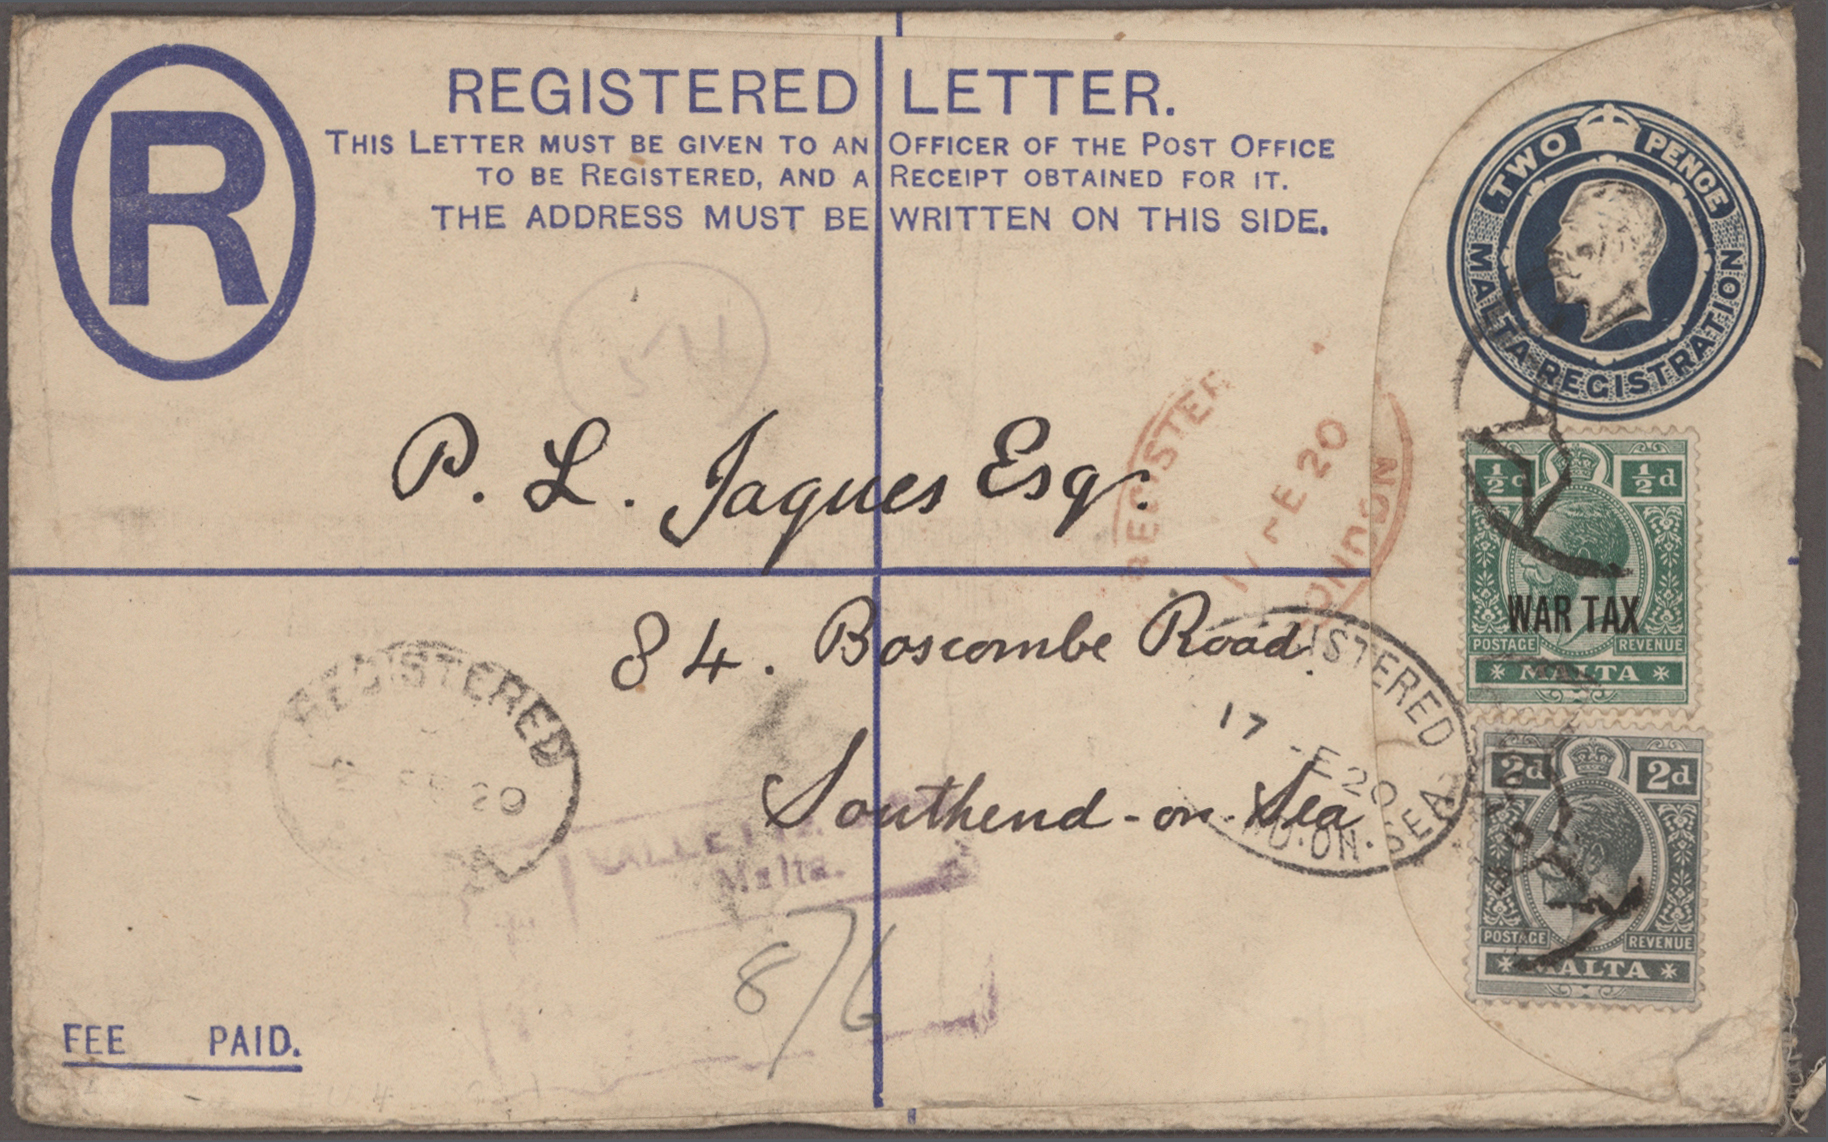 R
REGISTERED LETTER.
THIS LETTER MUST BE GIVEN TO AN OFFICER OF THE POST OFFICE
TO BE REGISTERED, AND A RECEIPT OBTAINED FOR IT.
THE ADDRESS MUST BE WRITTEN ON THIS SIDE.
TWO PENCE
MALTA REGISTRATION
54
P. L. Jaques Esq.
REGISTER
17 FE 20
ONDON
½d ½d
WAR TAX
POSTAGE REVENUE
MALTA
84. Boscombe Road.
Southend-on-Sea
ISTERED
17 E 20
D.ON.SEA
REGISTERED
20
VALLETTA
Malta.
2d 2d
POSTAGE REVENUE
MALTA
8/6
FEE PAID.